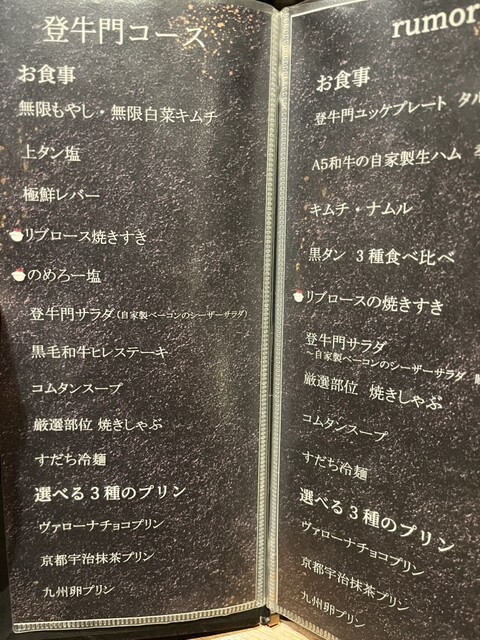 登牛門コース
お食事
無限もやし・無限白菜キムチ
上タン塩
極鮮レバー
リブロース焼きすき
のめろー塩
登牛門サラダ(自家製ベーコンのシーザーサラダ)
黒毛和牛ヒレステーキ
コムタンスープ
厳選部位 焼きしゃぶ
すだち冷麺
選べる3種のプリン
ヴァローナチョコプリン
京都宇治抹茶プリン
九州卵プリン
rumor
お食事
登牛門ユッケプレート タル
A5和牛の自家製生ハム
キムチ・ナムル
黒タン 3種食べ比べ
リブロースの焼きすき
登牛門サラダ
~自家製ベーコンのシーザーサラダ
厳選部位 焼きしゃぶ
コムタンスープ
すだち冷麺
選べる3種のプリン
ヴァローナチョコプリン
京都宇治抹茶プリン
九州卵プリン